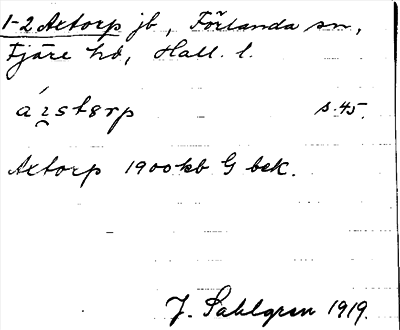 1-2 Axtorp jb, Förlanda sn,
Fjäre hd, Hall. l.
s. 45.
Axtorp 1900 kb G bek.
J. Sahlgren 1919.